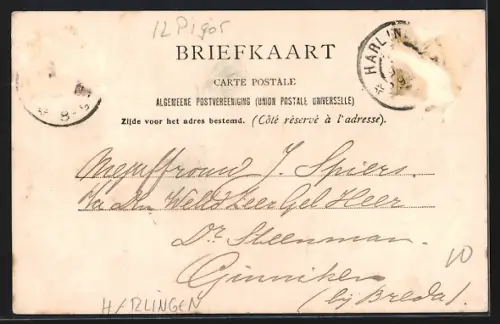 12 P 1905
BRIEFKAART
CARTE POSTALE
ALGEMEENE POSTVEREENIGING (UNION POSTALE UNIVERSELLE)
Zijde voor het adres bestemd. (Côté réservé à l'adresse).
HARLIN
8-
Mejuffrouw J. Spiers.
p/a Den WeledZeerGel Heer
Dr. Steenman.
Ginniken
(bij Breda).
10
HARLINGEN